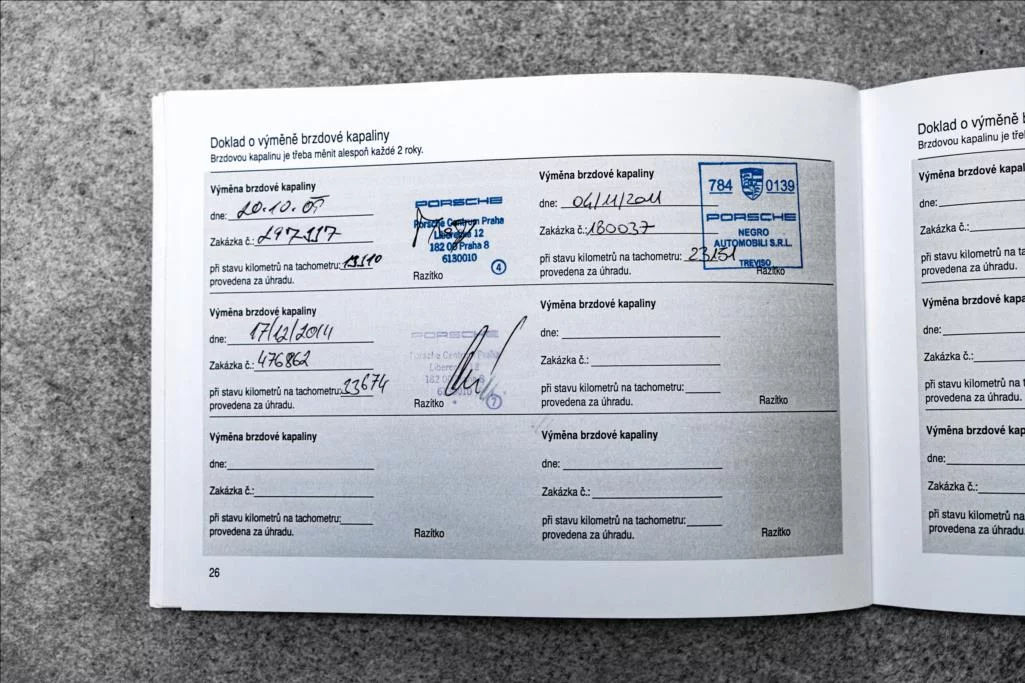 Doklad o výměně brzdové kapaliny
Brzdovou kapalinu je třeba měnit alespoň každé 2 roky.
Výměna brzdové kapaliny
dne: 20.10.09
Zakázka č.: 297117
při stavu kilometrů na tachometru:
provedena za úhradu.
Razítko
PORSCHE
Porsche Centrum Praha
Liberecká 12
182 00 Praha 8
6130010
4
Výměna brzdové kapaliny
dne: 04/11/2011
Zakázka č.: 180037
při stavu kilometrů na tachometru: 23151
provedena za úhradu.
Razítko
784 0139
PORSCHE
NEGRO
AUTOMOBILI S.R.L.
TREVISO
Výměna brzdové kapaliny
dne: 17/12/2014
Zakázka č.: 476862
při stavu kilometrů na tachometru: 33674
provedena za úhradu.
Razítko
PORSCHE
Porsche Centrum Praha
Liberecká 12
182 00 Praha 8
6130010
7
Výměna brzdové kapaliny
dne:
Zakázka č.:
při stavu kilometrů na tachometru:
provedena za úhradu.
Razítko
Výměna brzdové kapaliny
dne:
Zakázka č.:
při stavu kilometrů na tachometru:
provedena za úhradu.
Razítko
Výměna brzdové kapaliny
dne:
Zakázka č.:
při stavu kilometrů na tachometru:
provedena za úhradu.
Razítko
26
Doklad o výměně
Brzdovou kapalinu je
Výměna brzdové
dne:
Zakázka č.:
při stavu kilometrů na
provedena za úhradu.
Výměna brzdové
dne:
Zakázka č.:
při stavu kilometrů na
provedena za úhradu.
Výměna brzdové
dne:
Zakázka č.:
při stavu kilometrů na
provedena za úhradu